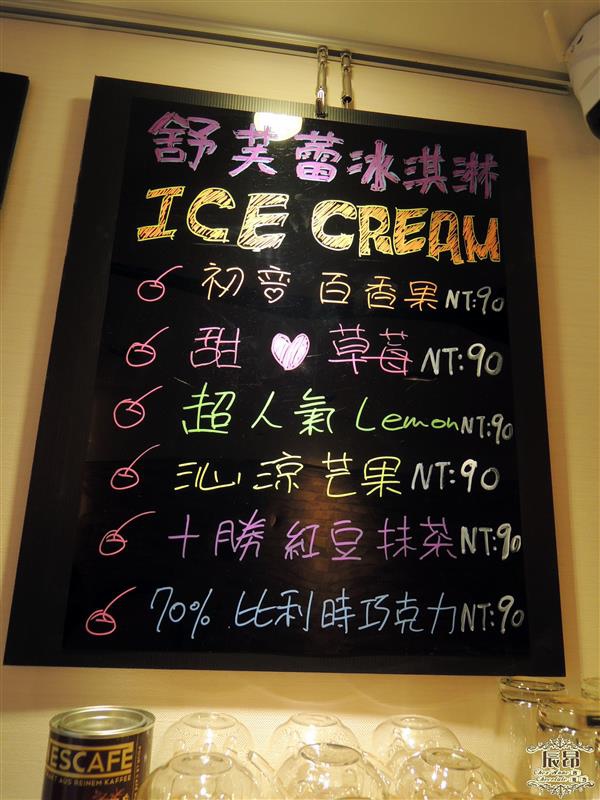 舒芙蕾冰淇淋
ICE CREAM
初音百香果NT:90
甜♥草莓NT:90
超人氣LemonNT:90
沁涼芒果NT:90
十勝紅豆抹茶NT:90
70%比利時巧克力NT:90
ESCAFÉ
AUS REINEM KAFFEE
辰昂